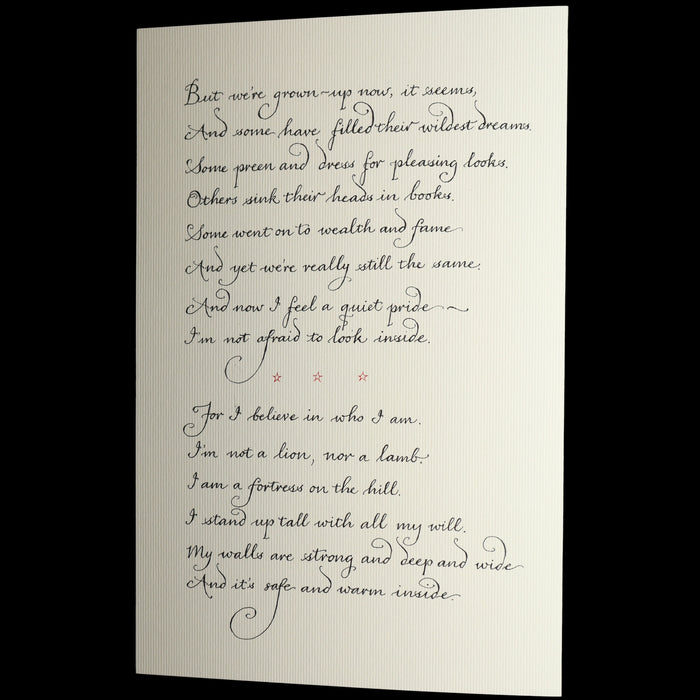 But we're grown-up now, it seems,
And some have filled their wildest dreams.
Some preen and dress for pleasing looks.
Others sink their heads in books.
Some went on to wealth and fame
And yet we're really still the same.
And now I feel a quiet pride ~
I'm not afraid to look inside.
☆ ☆ ☆
For I believe in who I am.
I'm not a lion, nor a lamb.
I am a fortress on the hill.
I stand up tall with all my will.
My walls are strong and deep and wide
And it's safe and warm inside.